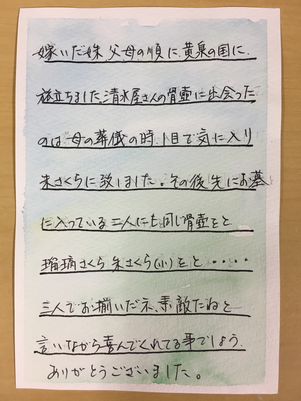 嫁いだ妹 父母の順に、黄泉の国に、
旅立ちました 清水屋さんの骨壷に出会った
のは 母の葬儀の時、1目で気に入り
朱さくらに致しました。その後 先にお墓
に入っている 二人にも同じ骨壷をと
瑠璃さくら 朱さくら(小)をと・・・・
三人でお揃いだネ、素敵だねと
言いながら喜んでくれてる事でしょう、
ありがとうございました。